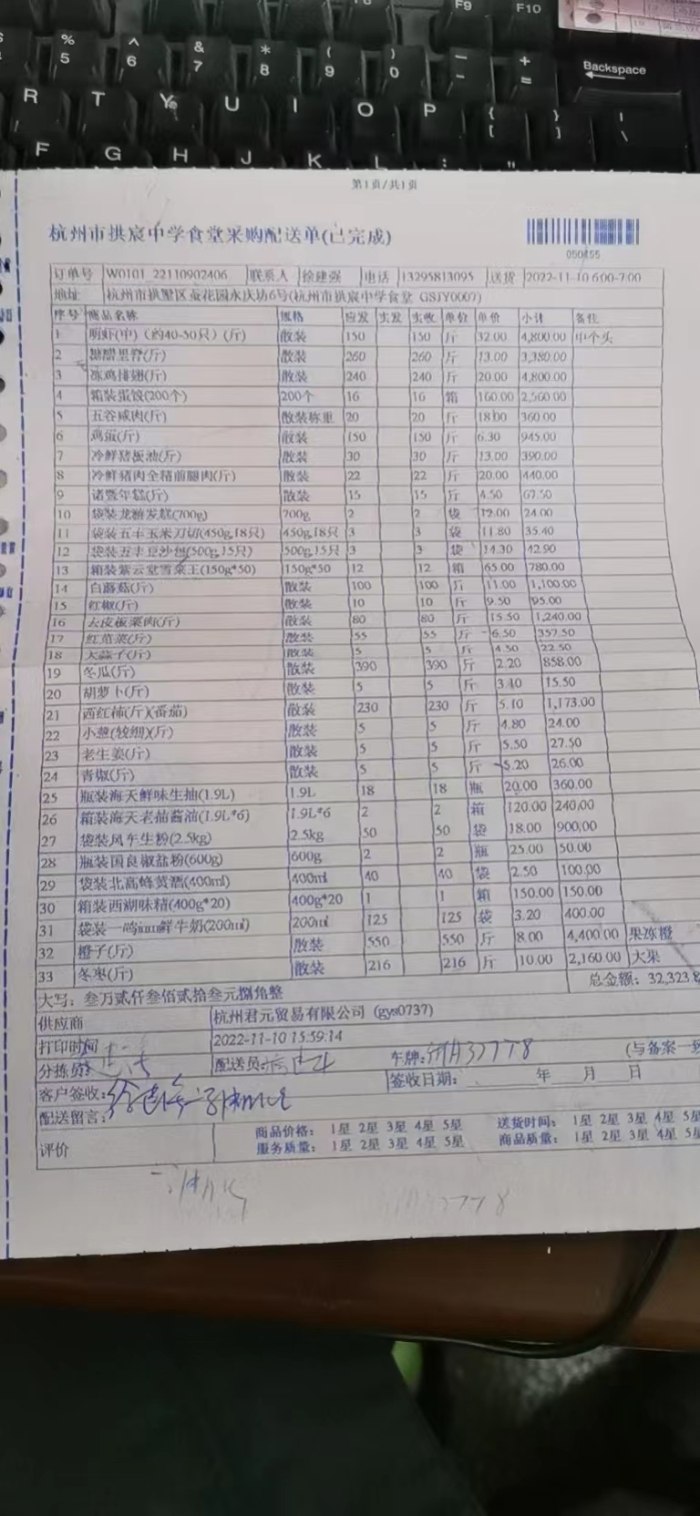 F9 F10
% 5 ^ 6 & 7 * 8 ( 9 ) 0 — - + = Backspace
R T Y U I O P { [ } ] | \
F G H J K L : "
第1页/共1页
杭州市拱宸中学食堂采购配送单(已完成)
050455
订单号 W0101_22110902406 联系人 徐建强 电话 13295813095 送货 2022-11-10 6:00-7:00
地址 杭州市拱墅区 花园永庆坊6号(杭州市拱宸中学食堂 GSJY0007)
序号 商品名称 规格 应发 实发 实收 单位 单价 小计 备注
1 明虾(中)(约40-50只)(斤) 散装 150 150 斤 32.00 4,800.00 中个头
2 糖醋里脊(斤) 散装 260 260 斤 13.00 3,380.00
3 冻鸡排翅(斤) 散装 240 240 斤 20.00 4,800.00
4 箱装蛋饺(200个) 200个 16 16 箱 160.00 2,560.00
5 五谷咸肉(斤) 散装称重 20 20 斤 18.00 360.00
6 鸡蛋(斤) 散装 150 150 斤 6.30 945.00
7 冷鲜猪板油(斤) 散装 30 30 斤 13.00 390.00
8 冷鲜猪肉全精前腿肉(斤) 散装 22 22 斤 20.00 440.00
9 诸暨年糕(斤) 散装 15 15 斤 4.50 67.50
10 袋装龙游发糕(700g) 700g 2 2 袋 12.00 24.00
11 袋装五丰玉米刀切(450g,18只) 450g,18只 3 3 袋 11.80 35.40
12 袋装五丰豆沙包(500g,15只) 500g,15只 3 3 袋 14.30 42.90
13 箱装紫云堂雪菜王(150g*50) 150g*50 12 12 箱 65.00 780.00
14 白蘑菇(斤) 散装 100 100 斤 11.00 1,100.00
15 红椒(斤) 散装 10 10 斤 9.50 95.00
16 去皮板栗肉(斤) 散装 80 80 斤 15.50 1,240.00
17 红苋菜(斤) 散装 55 55 斤 6.50 357.50
18 大蒜子(斤) 散装 5 5 斤 4.50 22.50
19 冬瓜(斤) 散装 390 390 斤 2.20 858.00
20 胡萝卜(斤) 散装 5 5 斤 3.10 15.50
21 西红柿(斤)(番茄) 散装 230 230 斤 5.10 1,173.00
22 小葱(较细)(斤) 散装 5 5 斤 4.80 24.00
23 老生姜(斤) 散装 5 5 斤 5.50 27.50
24 青椒(斤) 散装 5 5 斤 5.20 26.00
25 瓶装海天鲜味生抽(1.9L) 1.9L 18 18 瓶 20.00 360.00
26 箱装海天老抽酱油(1.9L*6) 1.9L*6 2 2 箱 120.00 240.00
27 袋装风车生粉(2.5kg) 2.5kg 50 50 袋 18.00 900.00
28 瓶装国良椒盐粉(600g) 600g 2 2 瓶 25.00 50.00
29 袋装北高峰黄酒(400ml) 400ml 40 40 袋 2.50 100.00
30 箱装西湖味精(400g*20) 400g*20 1 1 箱 150.00 150.00
31 袋装一鸣 鲜牛奶(200ml) 200ml 125 125 袋 3.20 400.00
32 橙子(斤) 散装 550 550 斤 8.00 4,400.00 果冻橙
33 冬枣(斤) 散装 216 216 斤 10.00 2,160.00 大果
大写：叁万贰仟叁佰贰拾叁元捌角整 总金额：32,323.8
供应商 杭州君元贸易有限公司 (gys0737)
打印时间 2022-11-10 15:59:14
分拣员: 配送员: 车牌: 37778 (与备案一致
客户签收: 签收日期： 年 月 日
配送留言:
评价 商品价格： 1星 2星 3星 4星 5星 送货时间： 1星 2星 3星 4星 5星
服务质量： 1星 2星 3星 4星 5星 商品质量： 1星 2星 3星 4星 5星